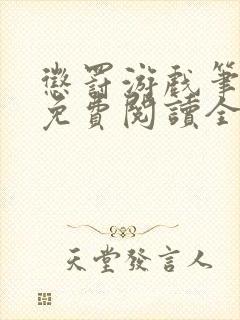 懲罰游戲筆
免費閱讀全
天堂發言人